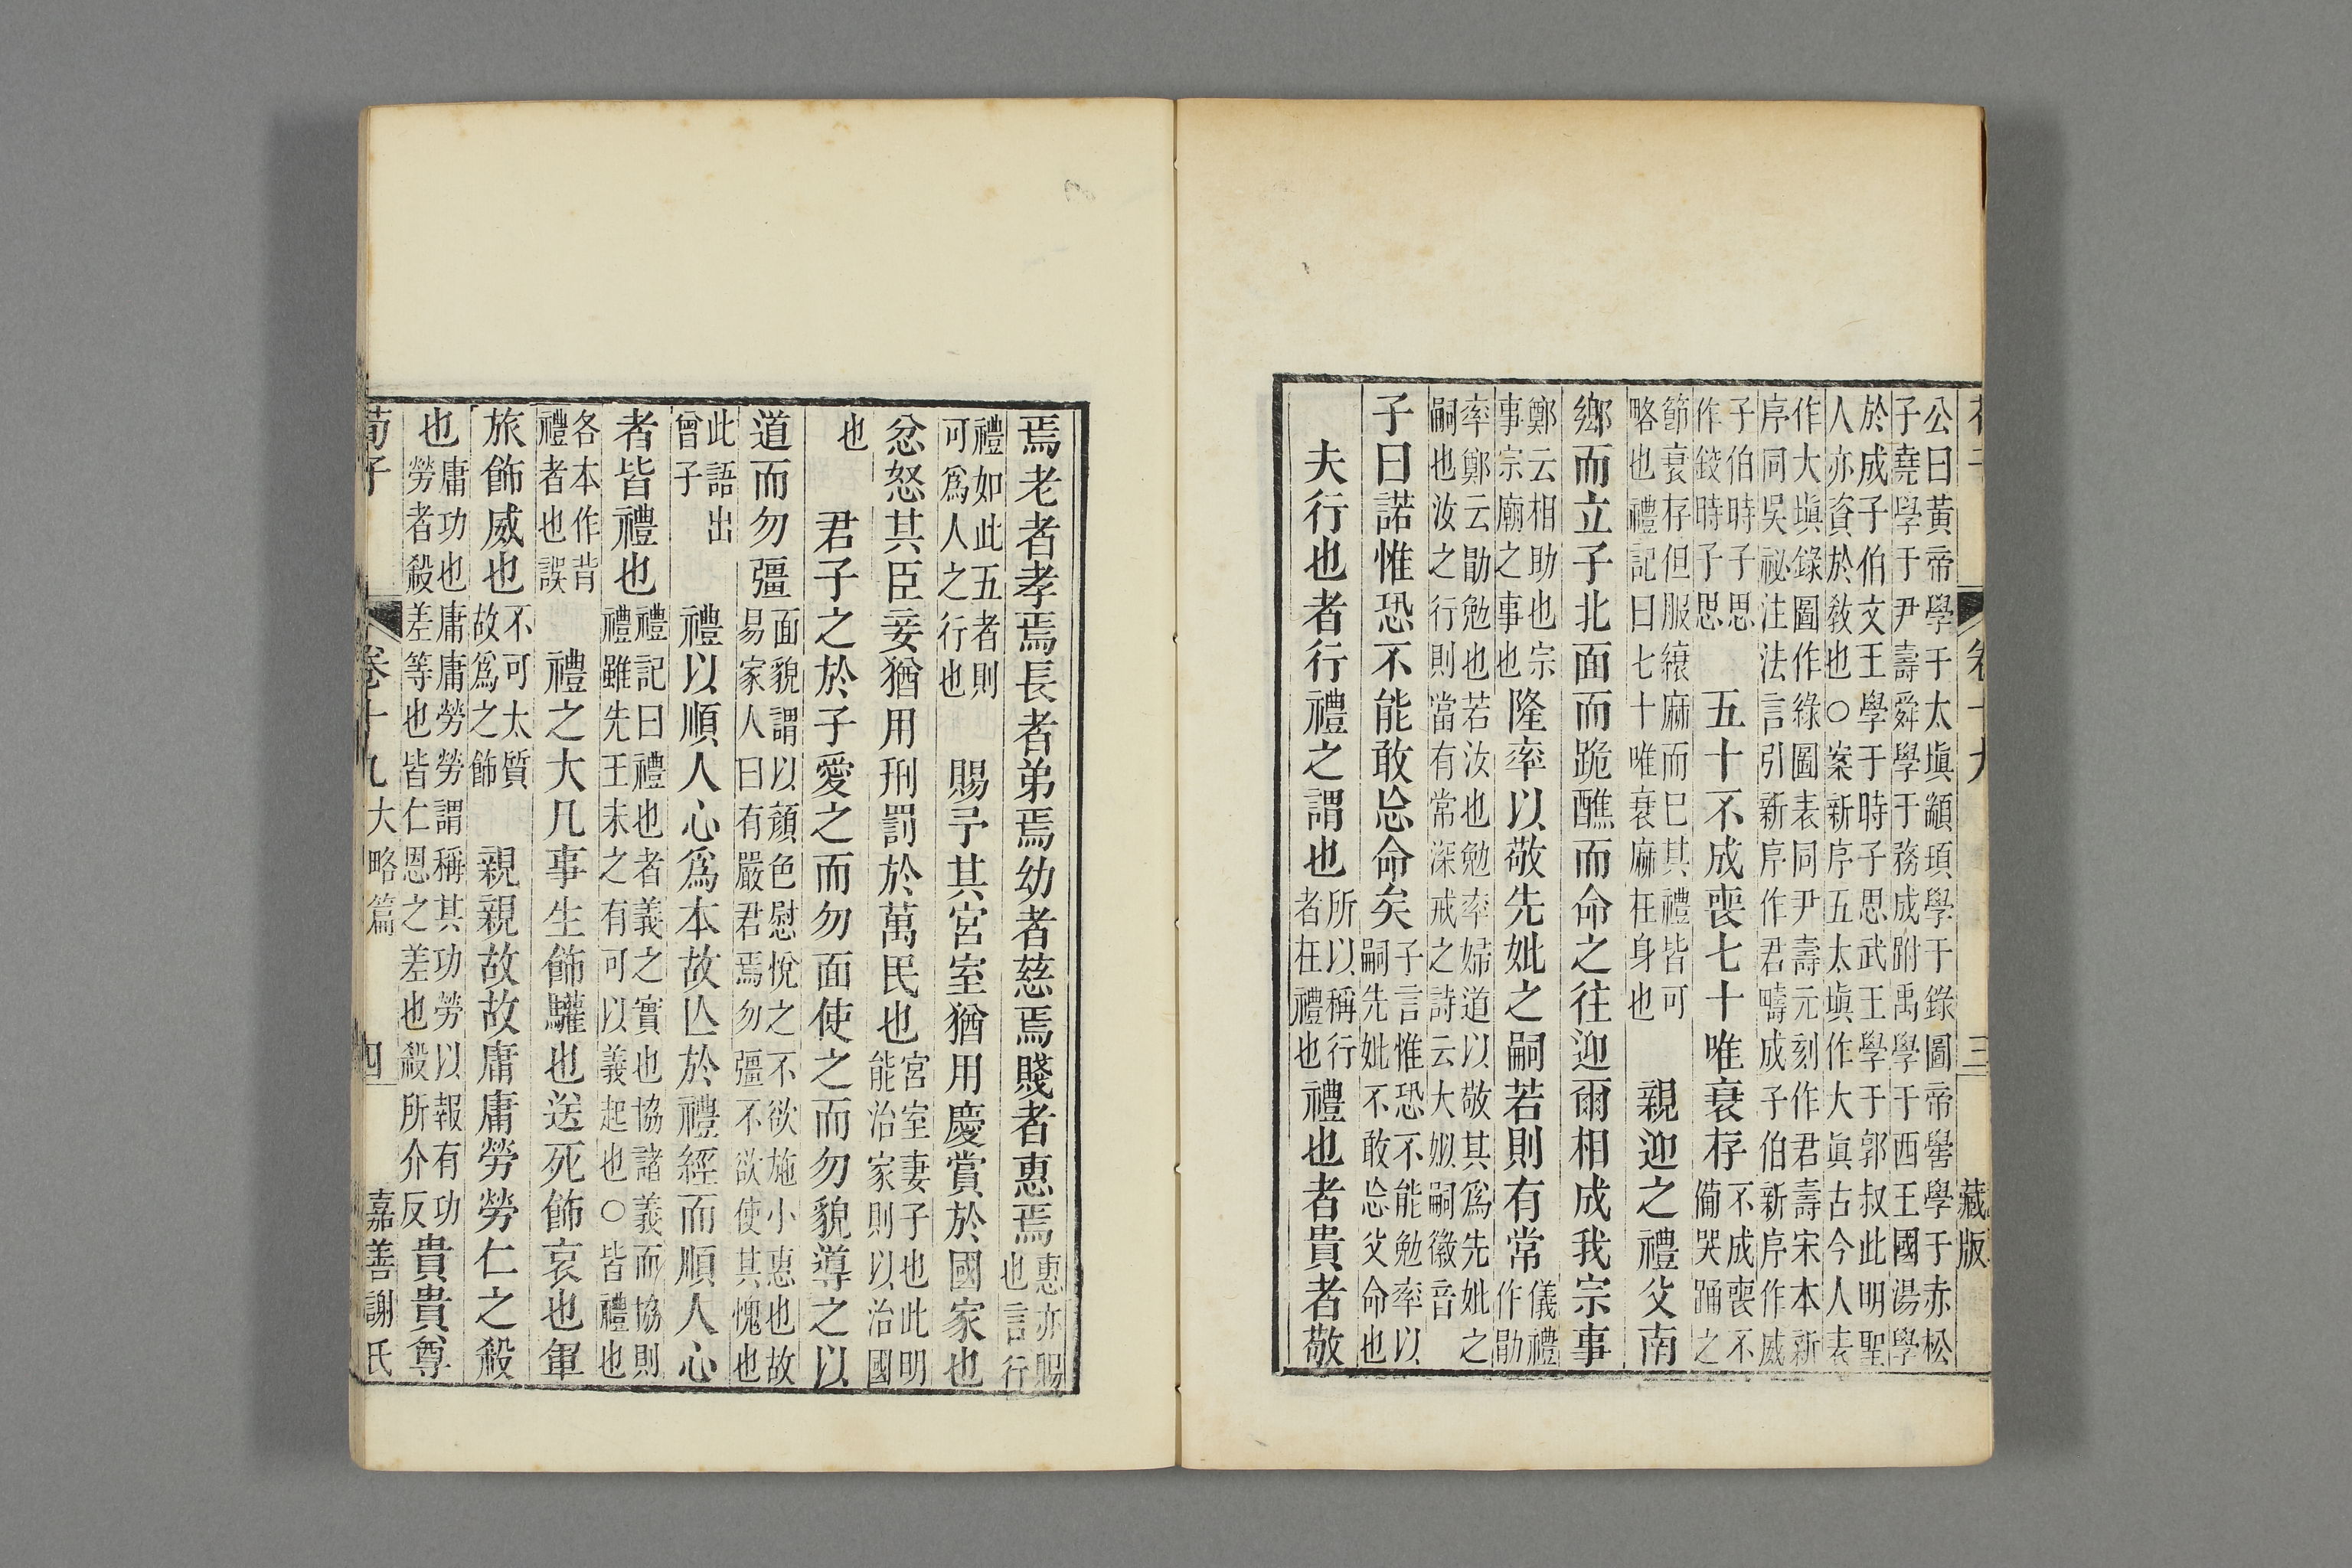 荀子 卷十九 三 藏版
公曰黃帝學于太塡顓頊學于錄圖帝嚳學于赤松
子堯學于尹壽舜學于務成跗禹學于西王國湯學
於成子伯文王學于時子思武王學于郭叔此明聖
人亦資於敎也○案新序五太塡作大眞古今人表
作大塡錄圖作綠圖表同尹壽元刻作君壽宋本新
序同吳祕注法言引新序作君疇成子伯新序作威
子伯時子思作鉸時子思 五十不成喪七十唯衰存不成喪不備哭踊之
節衰存但服縗麻而已其禮皆可略也禮記曰七十唯衰麻在身也 親迎之禮父南
鄉而立子北面而跪醮而命之往迎爾相成我宗事
鄭云相助也宗事宗廟之事也隆率以敬先妣之嗣若則有常儀禮作勖
率鄭云勖勉也若汝也勉率婦道以敬其爲先妣之
嗣也汝之行則當有常深戒之詩云大姒嗣徽音
子曰諾惟恐不能敢忘命矣子言惟恐不能勉率以嗣先妣不敢忘父命也
夫行也者行禮之謂也所以稱行者在禮也禮也者貴者敬
焉老者孝焉長者弟焉幼者慈焉賤者惠焉惠亦賜也言行
禮如此五者則可爲人之行也 賜予其宮室猶用慶賞於國家也
忿怒其臣妾猶用刑罰於萬民也宮室妻子也此明能治家則以治國
也 君子之於子愛之而勿面使之而勿貌導之以
道而勿彊面貌謂以顔色慰悅之不欲施小惠也故易家人曰有嚴君焉勿彊不欲使其愧也
此語出曾子 禮以順人心爲本故亾於禮經而順人心
者皆禮也禮記曰禮也者義之實也協諸義而協則禮雖先王未之有可以義起也○皆禮也
各本作背禮者也誤 禮之大凡事生飾驩也送死飾哀也軍
旅飾威也不可太質故爲之飾 親親故故庸庸勞勞仁之殺
也庸功也庸庸勞勞謂稱其功勞以報有功勞者殺差等也皆仁恩之差也殺所介反 貴貴尊
荀子 卷十九大略篇 四 嘉善謝氏